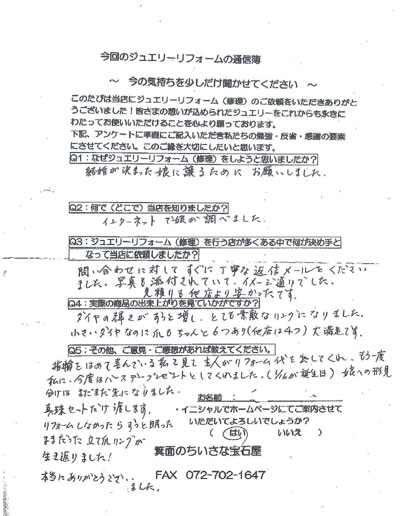 今回のジュエリーリフォームの通信簿
～ 今の気持ちを少しだけ聞かせてください ～
このたびは当店にジュエリーリフォーム（修理）のご依頼をいただきありがと
うございました！皆さまの想いが込められたジュエリーをこれからも永きに
わたってお使いいただけることを心より願っております。
下記、アンケートに率直にご記入いただき私たちの勉強・反省・感謝の要素
にさせてください。このご縁を大切にしたいと思います。
Q1：なぜジュエリーリフォーム（修理）をしようと思いましたか？
結婚が決まった娘に譲るために お願いしました。
Q2：何で（どこで）当店を知りましたか？
インターネットで娘が調べました。
Q3：ジュエリーリフォーム（修理）を行う店が多くある中で何が決め手と
なって当店に依頼しましたか？
問い合わせに対して すぐに丁寧な返信メールをください
ました。写真も添付されていて、イメージ通りでした。
見積りも他店より安かったです。
Q4：実際の商品の出来上がりを見ていかがですか？
ダイヤの輝きがずっと増し、とても素敵なリングになりました。
小さいダイヤなのに爪もちゃんと6つあり(他店は4つ)大満足です。
Q5：その他、ご意見・ご感想があれば教えてください。
指輪をはめて喜んでいる私を見て主人がリフォーム代を出してくれ、もう一度
私に、今度はバースデープレゼントとしてくれました。(が誕生日) 娘への形見
分けは まだまだ先になりました。
真珠セットだけ渡します。
リフォームしなかったら ずっと眠った
ままだった立て爪リングが
生き返りました！
本当にありがとうござい
ました。
お名前：
・イニシャルでホームページにてご案内させて
いただいてよろしいでしょうか？
（ はい いいえ ）
箕面のちいさな宝石屋
FAX 072-702-1647